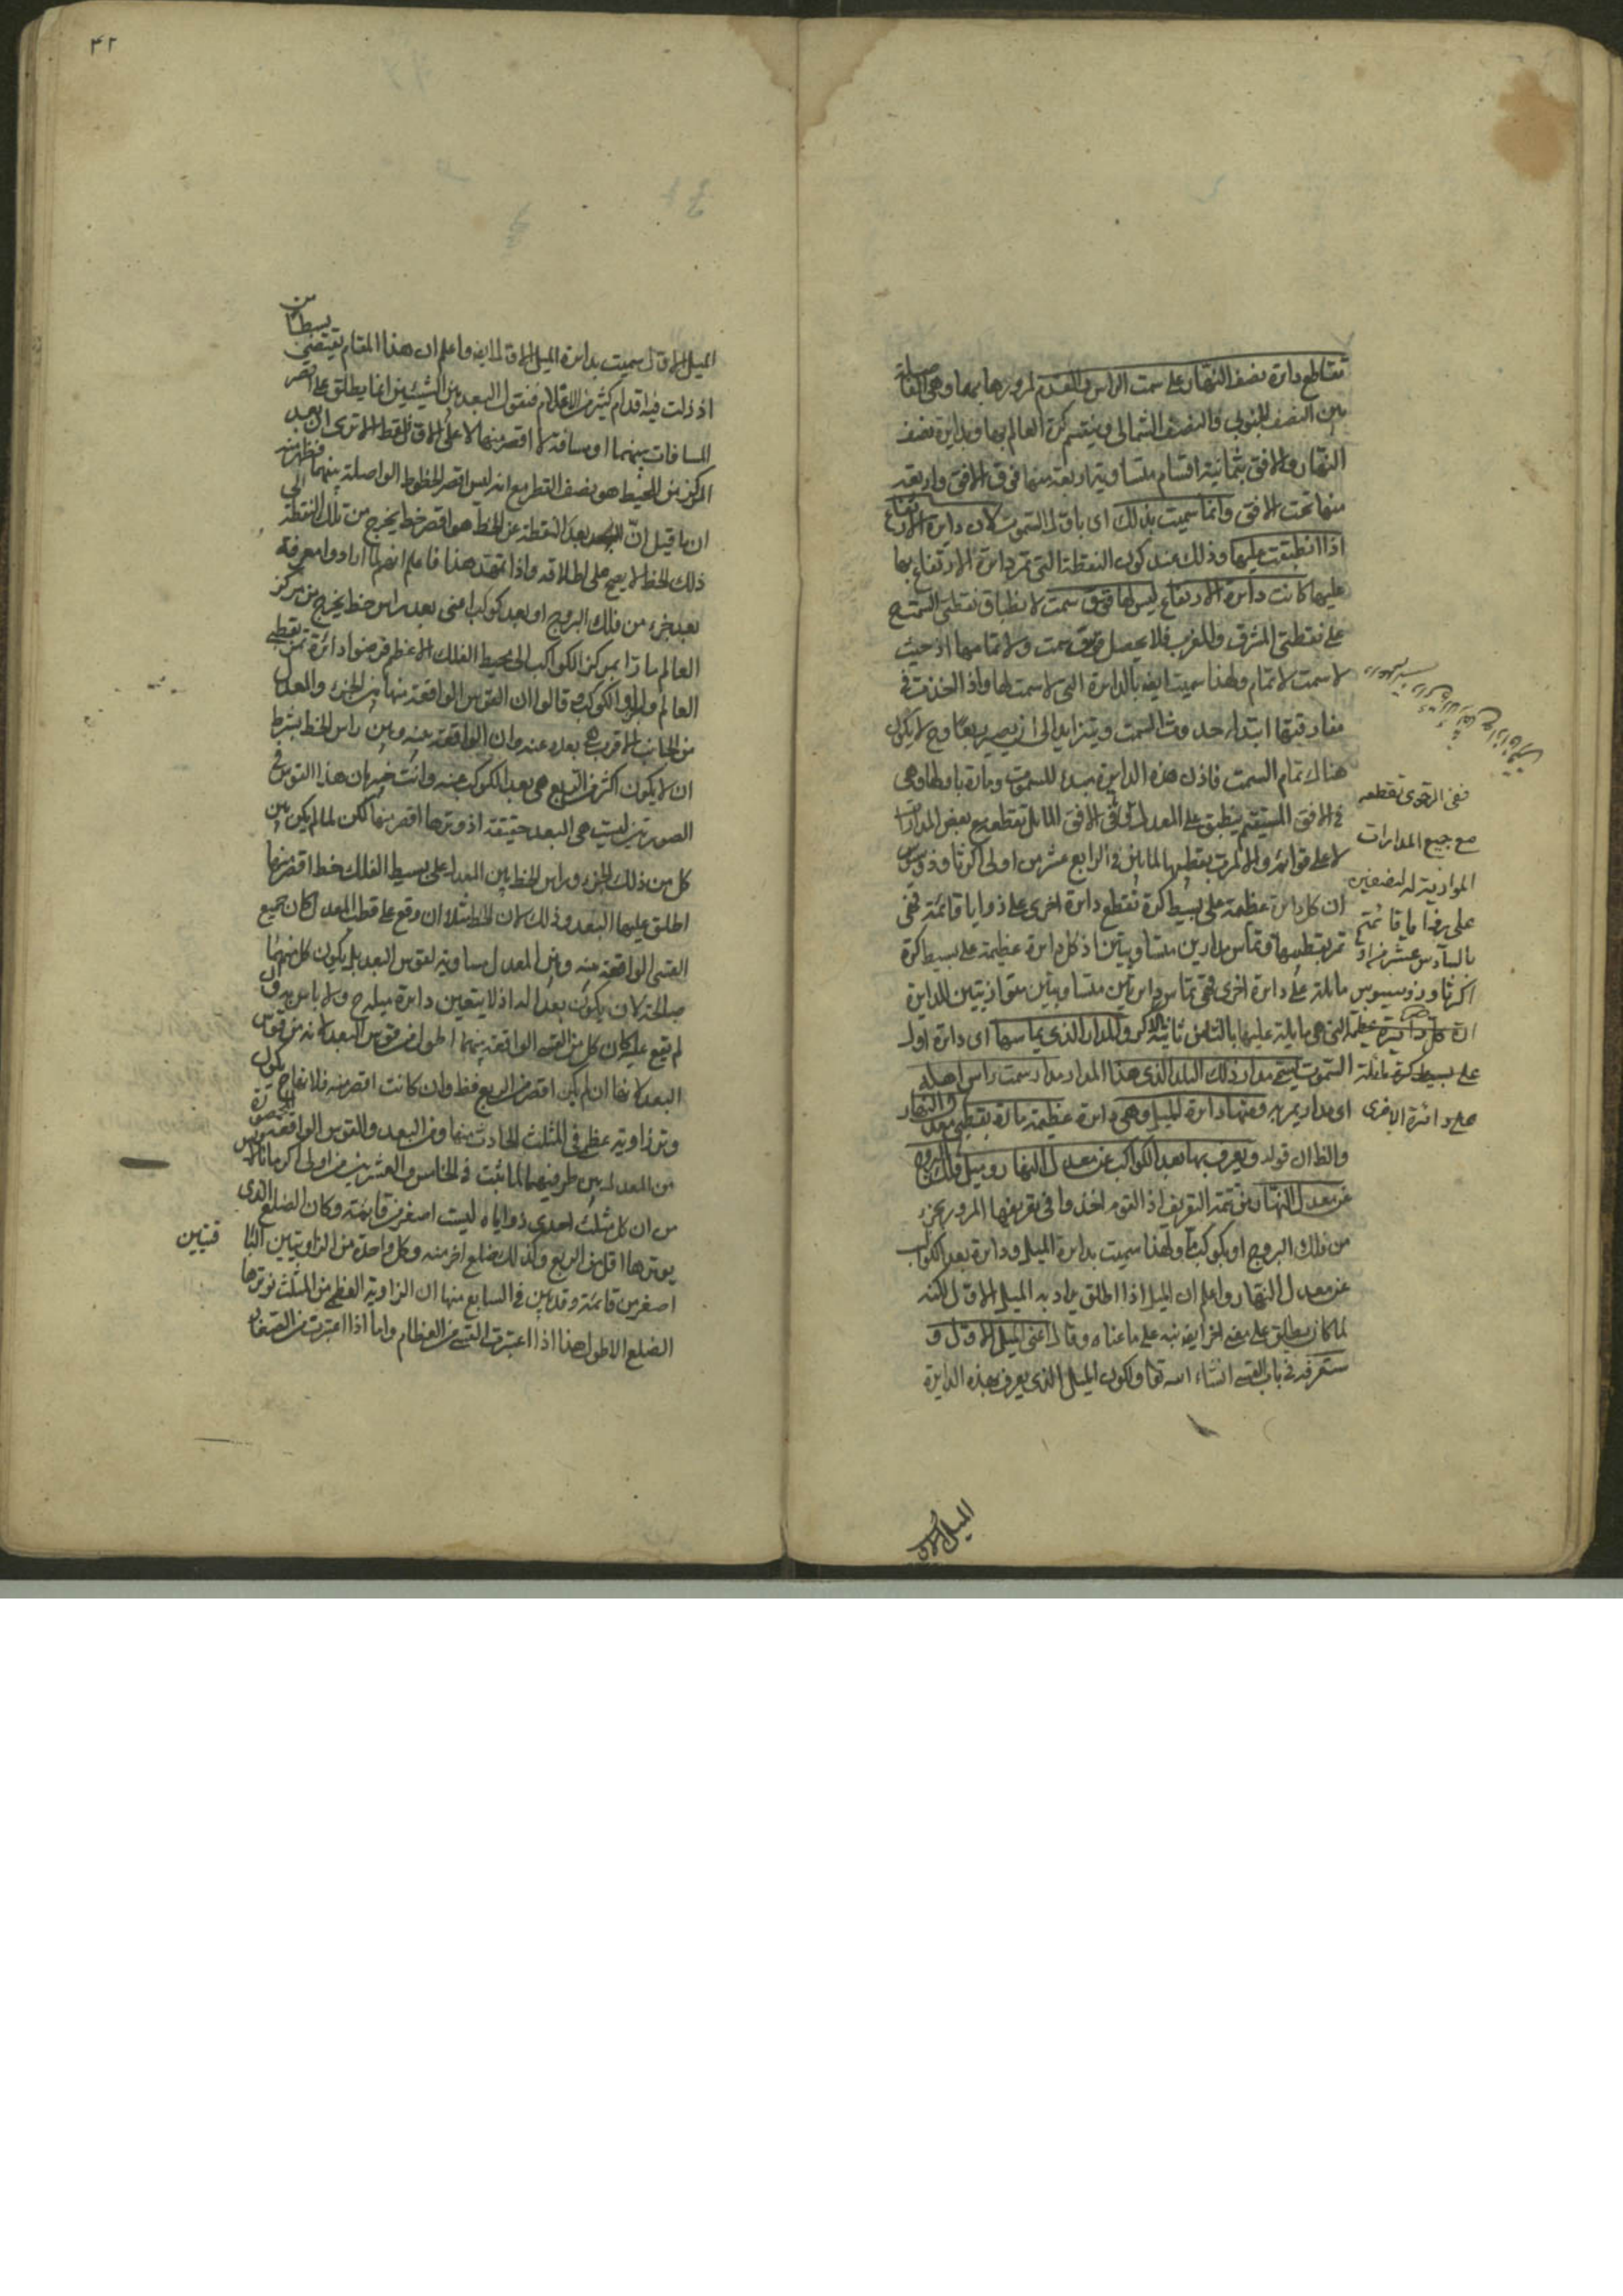 تقاطع دائرة نصف النهار على سمت الراس والقدم لمرورها بهما وهى الفاصلة
بين النصف الجنوبى والنصف الشمالى وينقسم كرة العالم بها وبدايرة نصف
النهار والافق بثمانية اقسام متساوية اربعة منها فوق الافق واربعة
منها تحت الافق وانما سميت بذلك اى باول السموت لان دايرة الارتفاع
اذا انطبقت عليها وذلك عند كون النقطة التى تمر دايرة الارتفاع بها
عليها كانت دايرة الارتفاع ليس لها قوس سمت لانطباق نقطتى السمت ح
على نقطتى المشرق والمغرب فلا يحصل قوس سمت ولا تمامها اذ حيث
لا سمت لا تمام ولهذا سميت ايضا بالدايرة التى لا سمت لها واذا اخذت فى
مفارقتها ابتداء حدوث السمت ويتزايد الى ان يصير ربعا وح لا يكون
هناك تمام السمت فاذن هذه الدايرة مبدء للسموت ومارة باقطارها وهى
فى الافق المستقيم ينطبق على المعدل وفى الافق المائل تقطعه مع بعض المدارات
لا على قوائم والا لمرت بقطبها لما بين فى الرابع عشر من اولى اكر ثاوذوسيوس
ان كل دايرة عظيمة على بسيط كرة تقطع دايرة اخرى على زوايا قائمة فهى
تمر بقطبيها وتماس مدارين متساويين اذ كل دايرة عظيمة على بسيط كرة
مائلة على دايرة اخرى فهى تماس دايرتين متساويتين متوازيتين للدايرة
التى هى مايلة عليها بالثامن ثانية الاكر والمدار الذى يماسها اى دايرة اول
السموت يسمى مدار ذلك البلد الذى هذا المدار مدار سمت راس اهله
اى مدار يمر به ومنها دايرة الميل وهى دايرة عظيمة مارة بقطبى معدل النهار
والظ ان قوله ويعرف بها بعد الكواكب عن معدل النهار وميل فلك البروج
عن معدل النهار من تتمة التعريف اذ القوم اخذوا فى تعريفها المرور بجزء
من فلك البروج او بكوكب ما ولهذا سميت بدايرة الميل ودايرة بعد الكواكب
عن معدل النهار واعلم ان الميل اذا اطلق يراد به الميل الاول لكنه
لما كان يطلق على معنى اخر ايضا نبه على ما عناه وقال اعنى الميل الاول و
ستعرفه فى باب القسى انشاء الله تعا ولكون الميل الذى يعرف بهذه الدايرة
ففى الرحوى تقطعه
مع جميع المدارات
الموازية له بنصفين
على زوايا قائمة
بالسادس عشر من او
اكر ثاوذوسيوس
ان كل دائرة عظيمة
على بسيط كرة مائلة
على دائرة اخرى
الميل الاول
٤٢
الميل الاول سميت بدايرة الميل الاول ايضا واعلم ان هذا المقام يقتضى بسطا من
اذ زلت فيه اقدام كثير من الاعلام فنقول البعد بين الشيئين انما يطلق على اقصر
المسافات بينهما او مسافة لا اقصر منها لا على الاول فقط الا ترى ان بعد
المركز من المحيط هو نصف القطر مع انه ليس اقصر الخطوط الواصلة بينهما فظهر منه
ان ما قيل ان بعد النقطة عن الخط هو اقصر خط يخرج من تلك النقطة الى
ذلك الخط لا يصح على اطلاقه واذا تمهد هذا فاعلم انهم لما ارادوا معرفة
بعد جزء من فلك البروج او بعد كوكب اعنى بعد راس خط يخرج من مركز
العالم مارا بمركز الكواكب الى محيط الفلك الاعظم فرضوا دائرة تمر بقطبى
العالم والجزء او الكوكب وقالوا ان القوس الواقعة منها بين الجزء والمعدل
من الجانب الاقرب هى بعده عنه وان الواقعة منه وبين راس الخط بشرط
ان لا يكون اكثر من الربع هى بعد الكوكب عنه وانت خبير بان هذا القوس فى
الصورتين ليست هى البعد حقيقة اذ وترها اقصر منها لكن لما لم يكن بين
كل من ذلك الجزء وراس الخط وبين المعدل على بسيط الفلك خط اقصر منها
اطلق عليها البعد وذلك لان الخط مثلا ان وقع على قطب المعدل كان جميع
القسى الواقعة منه وبين المعدل مساوية لقوس البعد بل يكون كل منها
صالحة لان يكون بعدا له اذ لا يتعين دايرة ميله ح ولا باس به وان
لم يقع عليه كان كل من القسى الواقعة بينهما اطول من قوس البعد لانه من قوس
البعد لانها ان لم يكن اقصر من الربع فظ وان كانت اقصر منه فلانها ح يكون
وتر زاوية عظمى فى المثلث الحادث منها ومن البعد والقوس الواقعة
من المعدل بين طرفيهما لما ثبت فى الخامس والعشرين من اولى اكر مانالاوس
من ان كل مثلث احدى زواياه ليست اصغر من قايمة وكان الضلع الذى
يوترها اقل من الربع وكذلك ضلع اخر منه وكل واحدة من الزاويتين البا
قيتين
اصغر من قائمة وقد بين فى السابع منها ان الزاوية العظمى من المثلث يوترها
الضلع الاطول هذا اذا اعتبرت القسى من العظام واما اذا اعتبرت من الصغار